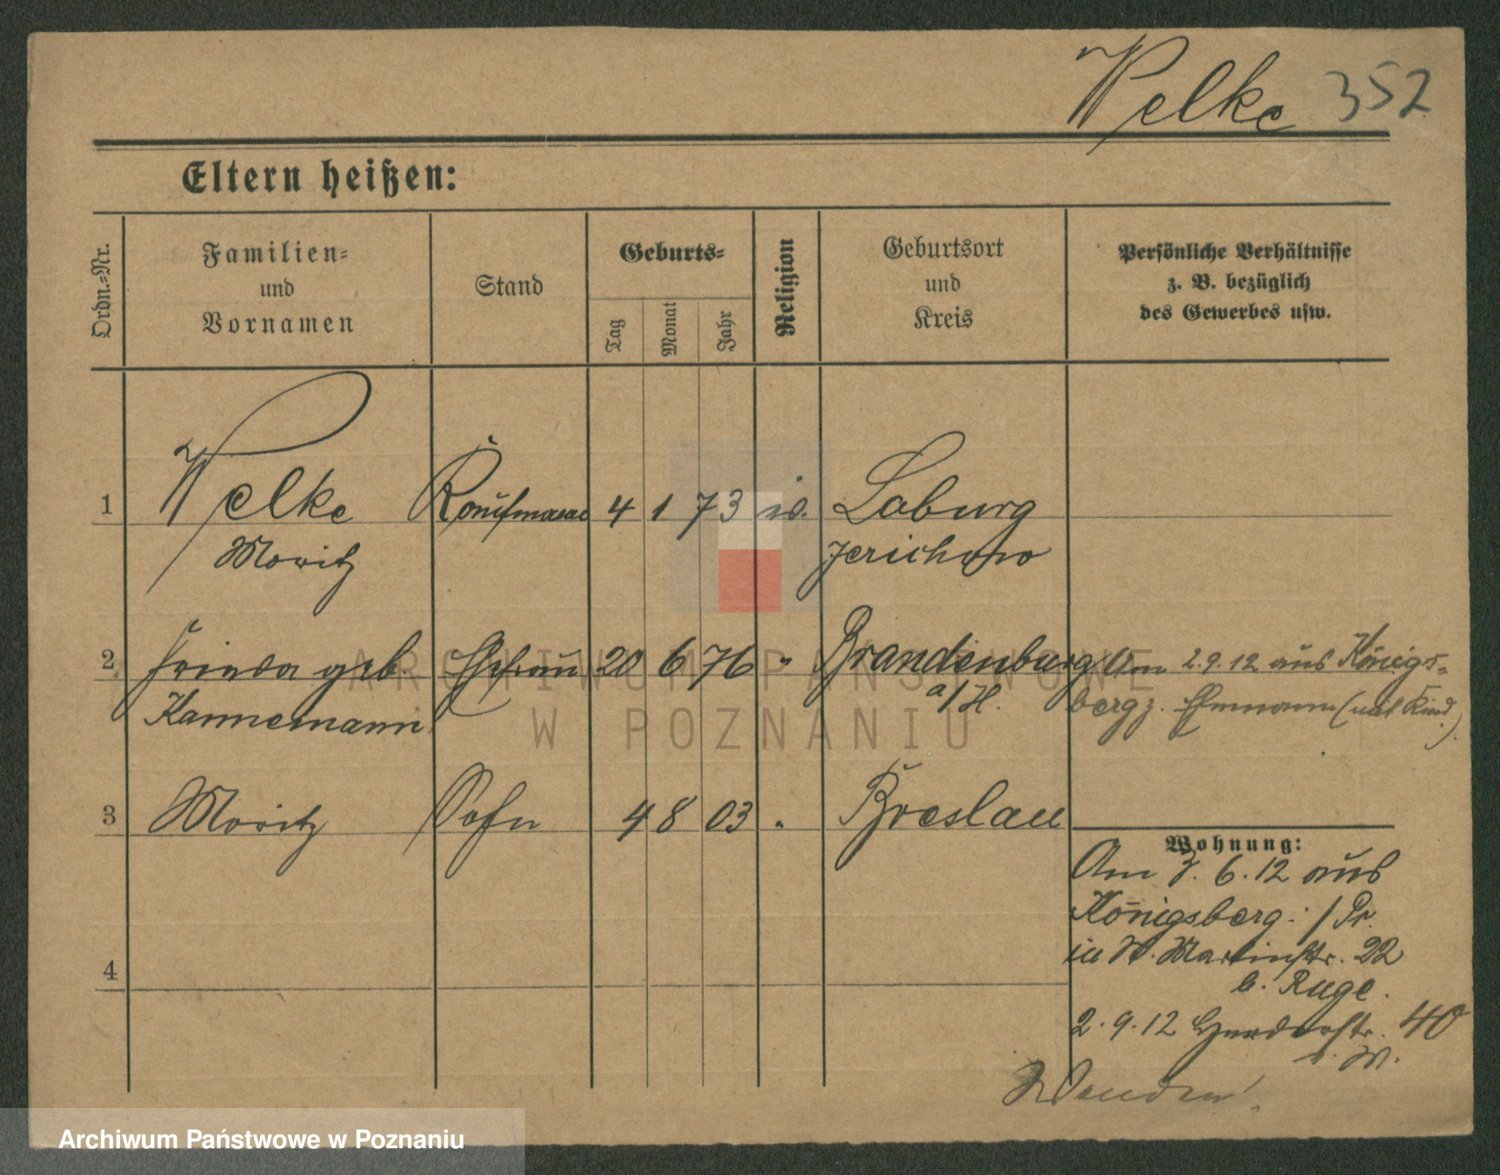 Welke 352
Eltern heißen:
Ordn.-Nr.
Familien-
und
Vornamen
Stand
Geburts-
Tag
Monat
Jahr
Religion
Geburtsort
und
Kreis
Persönliche Verhältnisse
z. B. bezüglich
des Gewerbes usw.
1 Welke Kaufmann 4 1 73 is. Loburg
Moritz Jerichow
2 Frieda geb. Ehefrau 20 6 76 " Brandenburg Am 2.9.12 aus Königs-
Kannemann a/H. berg z. Ehemann (mit Kind.)
3 Moritz Sohn 4 8 03 " Breslau
Wohnung:
Am 3. 6. 12 aus
Königsberg i/Pr.
in St. Martinstr. 22
b. Ruge.
4
2.9.12 Herderstr. 40
Wenden!
ARCHIWUM PAŃSTWOWE
W POZNANIU
Archiwum Państwowe w Poznaniu